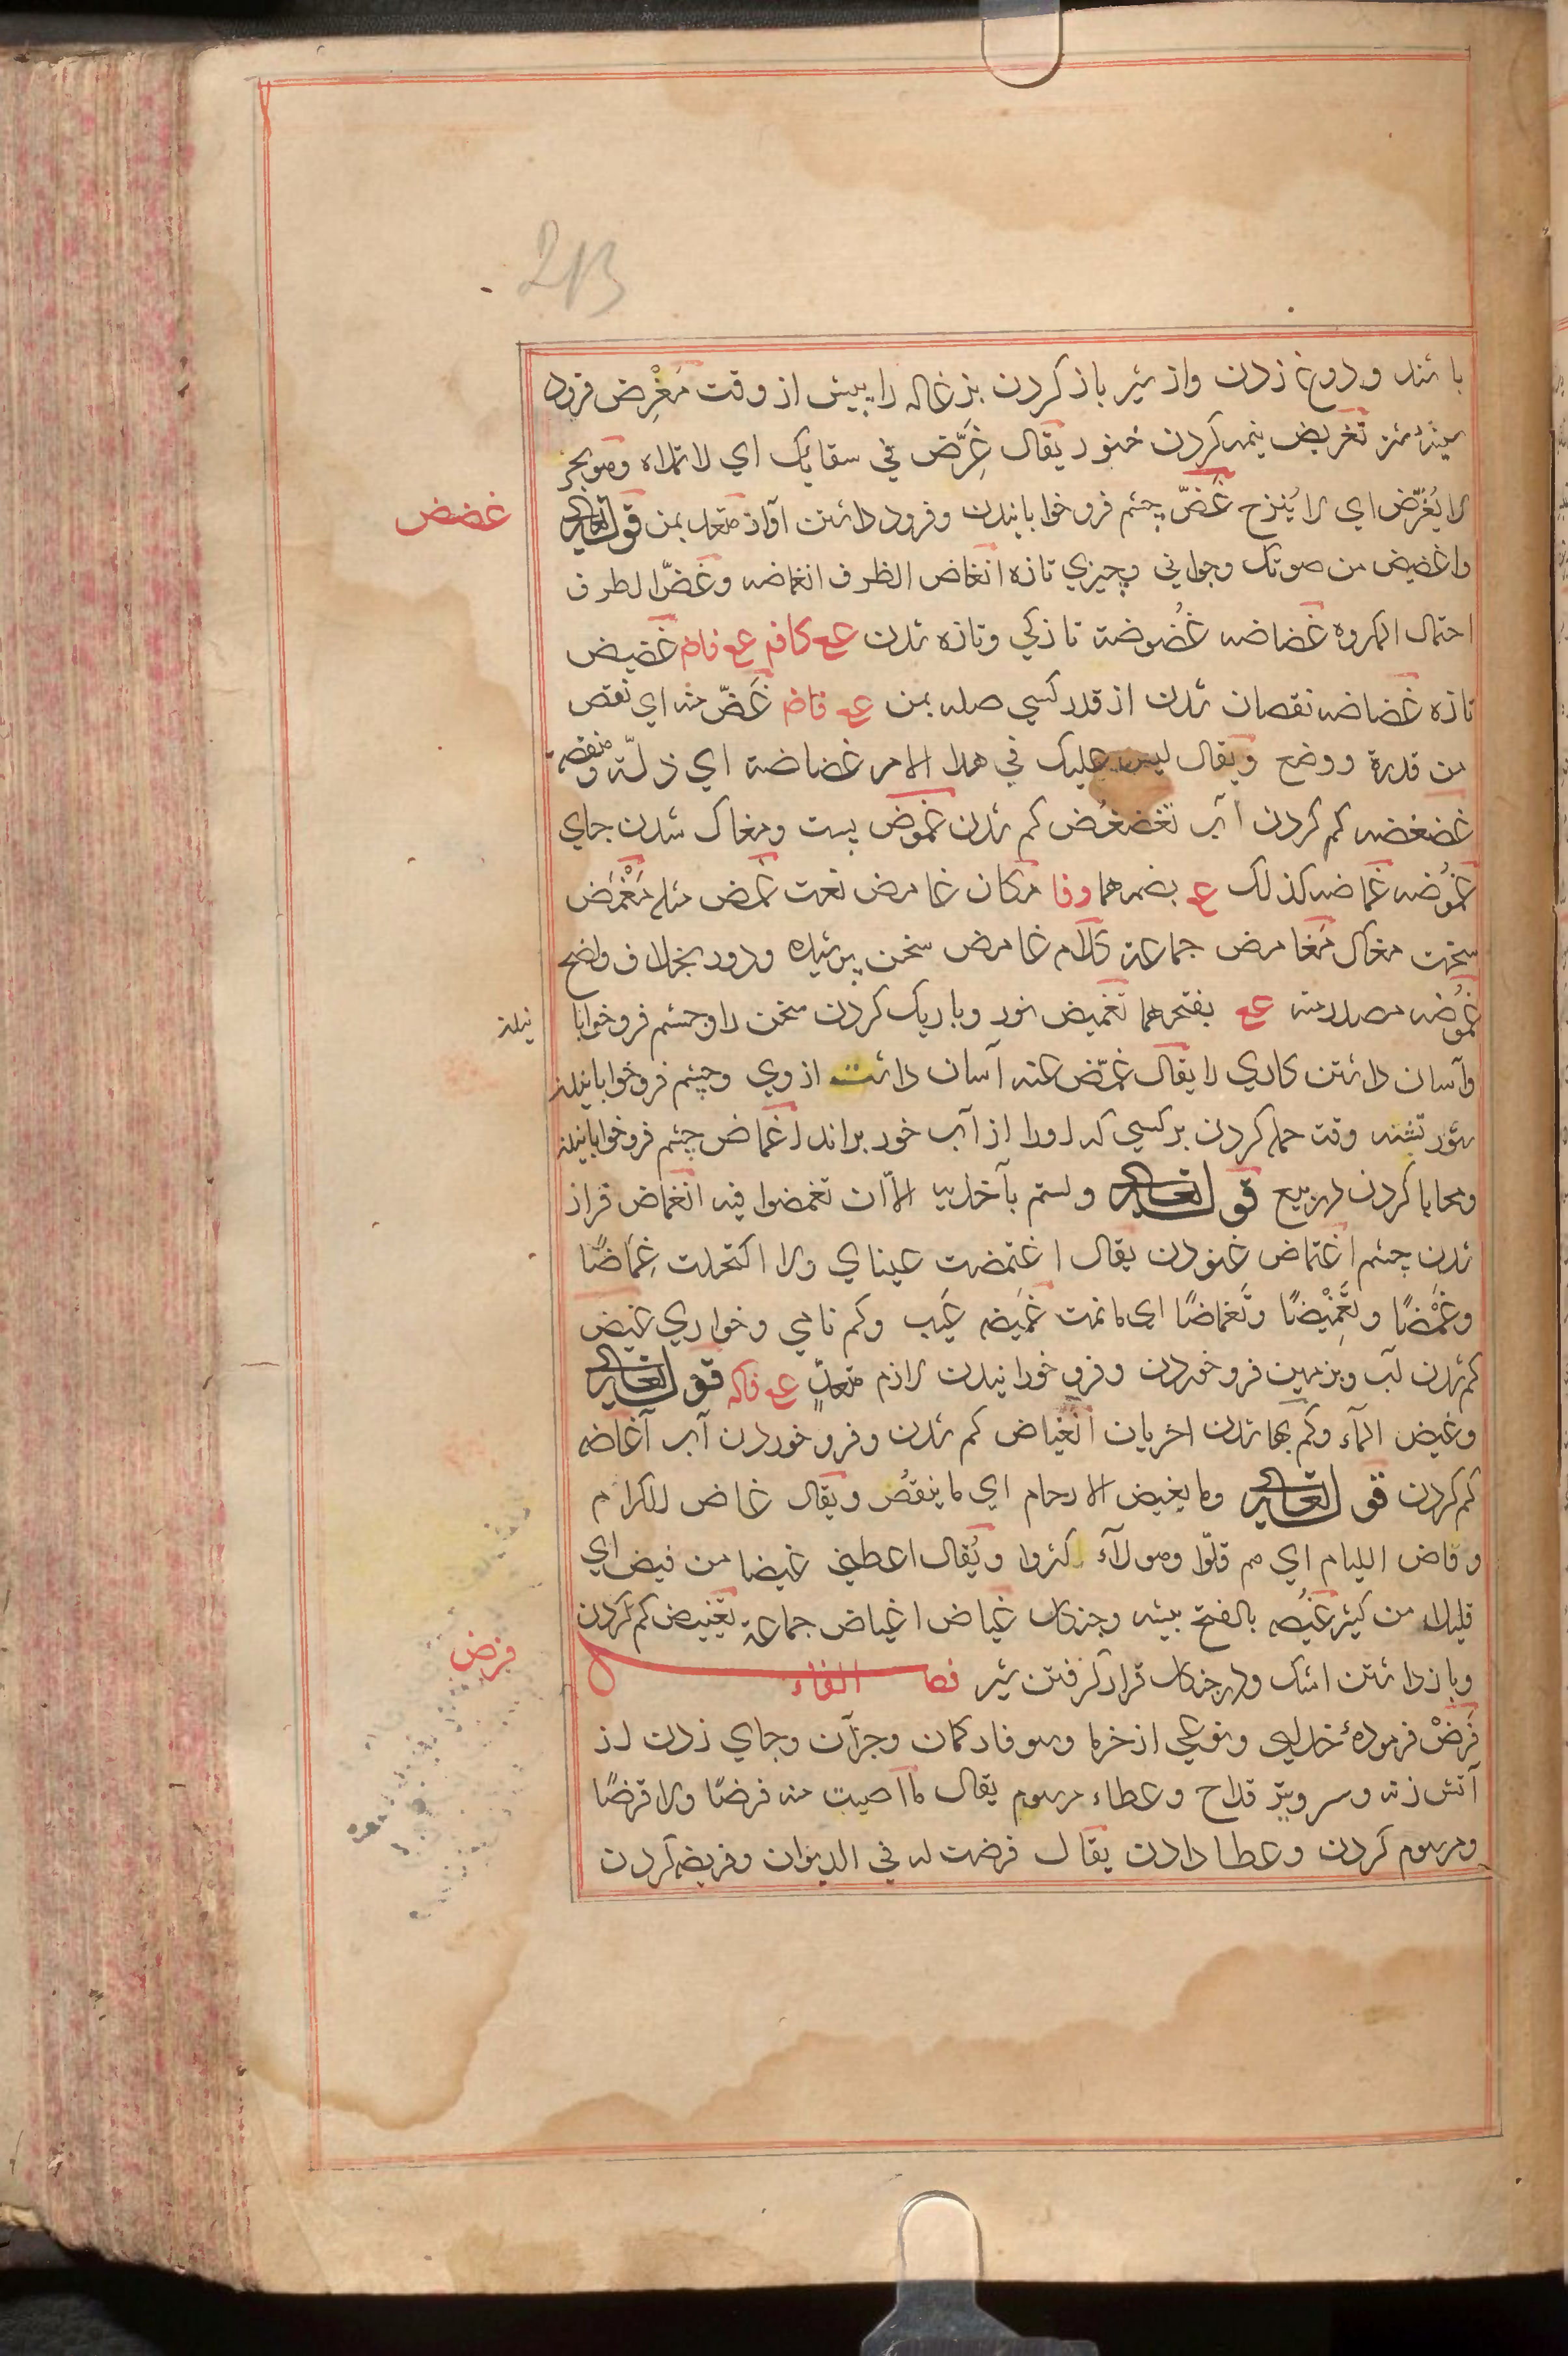 213
باشد و دوغ زدن واز شیر باز کردن بزغاله را پیش از وقت مَغْرِض فرود
سینهٔ شتر تغریض نیمه کردن خنور یقال غَرِّض في سقائک اي لا تملاه وهو بحر
لا یُغَرَّض اي لا یُنزح غَضّ چشم فرو خوابانیدن وفرود داشتن آواز متعد بمن قوله تعالی
غضض
واغضض من صوتک وجوانی وچیزي تازه انغاض الطرف انغماضه وغَضّ الطرف
احتمال المکروه غضاضه غُضُوضة تازکي وتازه شدن عع کافم عع فاض غضیض
تازه غضاضه نقصان شدن از قدر کسي صله بمن عـ فاض غَضّ منه اي نقص
من قدرة ووضع ویقال لیس علیک في هذا الامر غضاضة اي ذلّة ومنقصة
غضغضه کم کردن آب تغضغُض کم شدن غموض پست ومغاک شدن جاي
غمُوضه غماضه کذلک عـ بضمهما وفا مکان غامض نعت غمض مثله مَغْمَض
سخت مغاک مَغامض جماعة کلام غامض سخن پوشیده ودور بخلاف واضح
غمُوضه مصدر منه عع بفتحهما تغمیض نور وباریک کردن سخن را وچشم فرو خوابا
نیدن
وآسان داشتن کاري را یقال غمّض عنه آسان داشت از وي وچشم فرو خوابانیدن
ستور تشنه وقت حمله کردن بر کسي که اورا از آب خور براند اغماض چشم فرو خوابانیدن
ومحابا کردن در بیع قوله تعالی ولستم بآخذیه الاّ ان تغمضوا فیه انغماض فراز
شدن چشم اغتماض غنودن یقال اغتمضت عیناي ولا اکتحلت غِمَاضًا
وغَمْضًا وتَغْمِیْضًا وتَغماضًا اي ما نمت غَمیضه عَیب وکم نامي وخواري غیض
کم شدن آب وبزمین فرو خوردن وفرو خورانیدن لازم متعدٍّ عـ فاکه قوله تعالی
وغیض المآء وکم بها شدن اخریان انغیاض کم شدن وفرو خوردن آب آغاضه
کم کردن قوله تعالی وما یغیض الارحام اي ما ینقصُ ویقال غاض الکرام
وفاض اللیام اي هم قلّوا وهولآء کثروا ویُقال اعطیني غیضا من فیض اي
قلیلا من کثیر غَیْضه بالفتح بیشه وجنکل غیاض اغیاض جماعة تغییض کم کردن
وباز داشتن اشک ودر جنکل قرار گرفتن شیر فصل الفاء
فرض
فَرَضْ فرمودهٔ خداي ونوعي از خرما وسوفار کمان وجزآن وجاي زدن از
آتش زنه وسر وبن قداح وعطاء مرسوم یقال ما اصبت منه فرضًا ولا قرضًا
ومرسوم کردن وعطا دادن یقال فرضت له في الدیوان وفریضه کردن